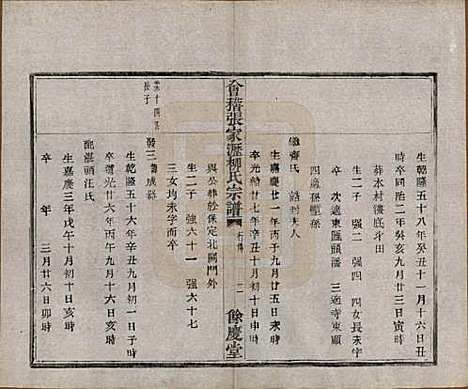 生乾隆五十八年癸丑十一月十六日丑
時卒同治二年癸亥九月廿三日寅時
葬水村漊底斗田
生二子 强二 强四 四女長未字
次適東匯頭潘 三適寺東顧
四歲孫
繼齊氏 誥封夫人
生嘉慶廿一年丙子九月廿五日未時
卒光緒廿七年辛丑十月初十日申時
與公葬於保定北關門外
生二子强六十一 强六十七
三女均未字卒
會稽張家瀝柳氏宗譜
行傳
餘慶堂
長子
發三 成路
生乾隆五十六年辛丑九月初五日亥時
卒道光廿六年丙午九月十六日亥時
配湛頭汪氏
生嘉慶三年戊午十月初十日亥時
卒 年 三月廿六日卯時